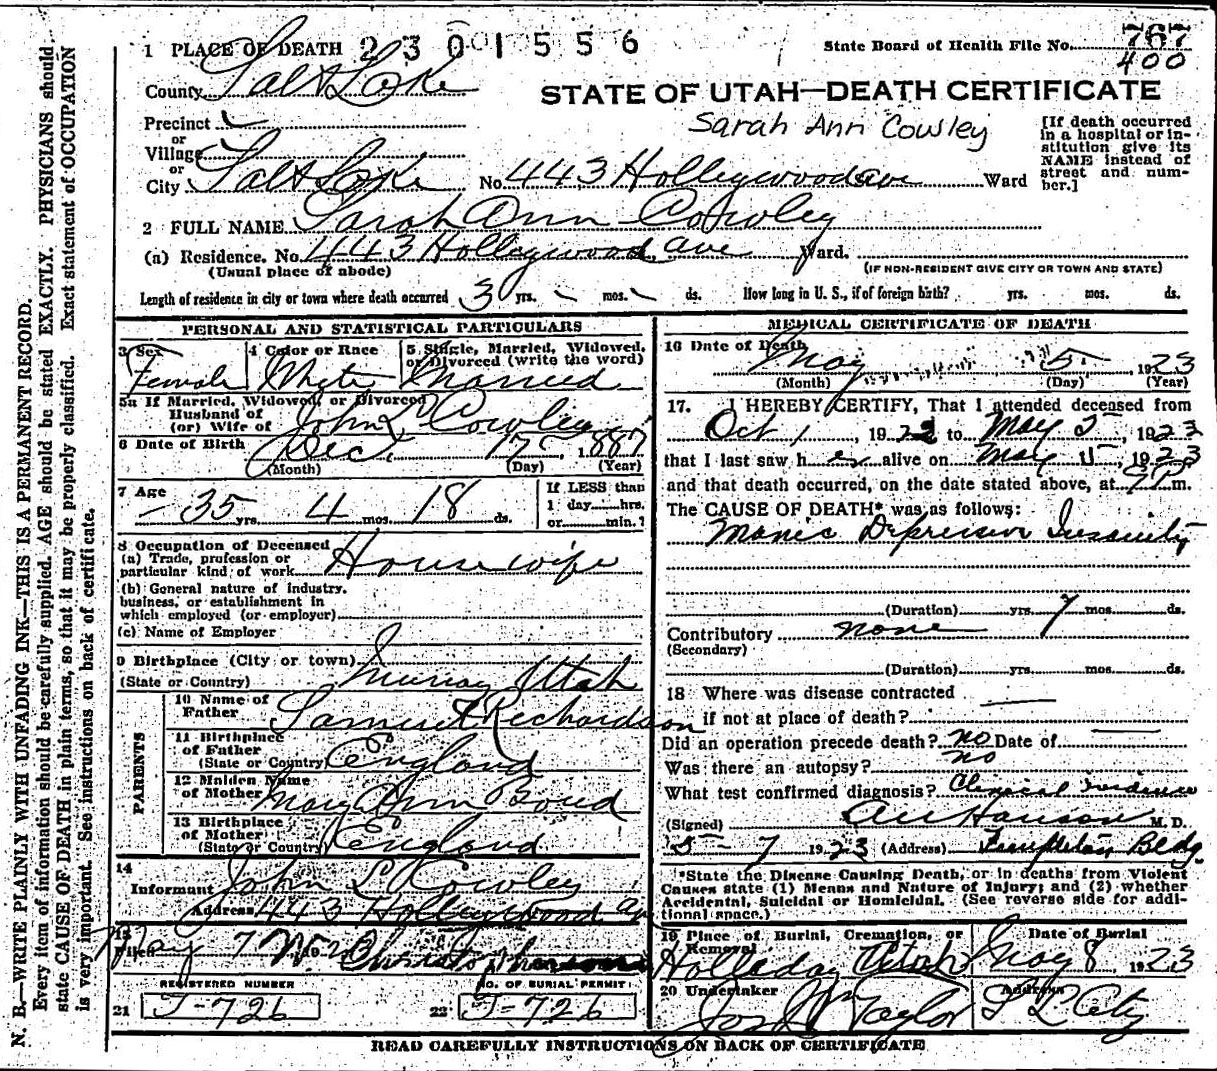 N. B.—WRITE PLAINLY WITH UNFADING INK—THIS IS A PERMANENT RECORD.
Every item of information should be carefully supplied. AGE should be stated EXACTLY. PHYSICIANS should
state CAUSE OF DEATH in plain terms, so that it may be properly classified. Exact statement of OCCUPATION
is very important. See instructions on back of certificate.
1 PLACE OF DEATH 2301556
State Board of Health File No. 767
400
County Salt Lake
STATE OF UTAH—DEATH CERTIFICATE
Sarah Ann Cowley
Precinct
or
Village
or
City Salt Lake No. 443 Holleywood ave Ward
[If death occurred
in a hospital or in-
stitution give its
NAME instead of
street and num-
ber.]
2 FULL NAME Sarah Ann Cowley
(a) Residence. No. 443 Holleywood ave Ward.
(Usual place of abode)
(IF NON-RESIDENT GIVE CITY OR TOWN AND STATE)
Length of residence in city or town where death occurred 3 yrs. - mos. - ds. How long in U. S., if of foreign birth? yrs. mos. ds.
PERSONAL AND STATISTICAL PARTICULARS
3 Sex 4 Color or Race 5 Single, Married, Widowed,
or Divorced (write the word)
Female White Married
5a If Married, Widowed, or Divorced
Husband of
(or) Wife of John L Cowley
6 Date of Birth Dec. 17, 1887
(Month) (Day) (Year)
7 Age 35 yrs. 4 mos. 18 ds.
If LESS than
1 day hrs.
or min.?
8 Occupation of Deceased
(a) Trade, profession or
particular kind of work Housewife
(b) General nature of industry.
business, or establishment in
which employed (or employer)
(c) Name of Employer
9 Birthplace (City or town)
(State or Country) Murray Utah
PARENTS
10 Name of
Father Samuel Richardson
11 Birthplace
of Father
(State or Country) England
12 Maiden Name
of Mother Mary Ann Bond
13 Birthplace
of Mother
(State or Country) England
14
Informant John L Cowley
Address 443 Holleywood av
15
Filed May 7
REGISTERED NUMBER NO. OF BURIAL PERMIT
21 J-726 22 J-726
MEDICAL CERTIFICATE OF DEATH
16 Date of Death
May 5 1923
(Month) (Day) (Year)
17. I HEREBY CERTIFY, That I attended deceased from
Oct 1, 1922 to May 5, 1923
that I last saw her alive on May 5, 1923
and that death occurred, on the date stated above, at 7 P.m.
The CAUSE OF DEATH* was as follows:
Manic Depressive Insanity
(Duration) yrs. 7 mos. ds.
Contributory none
(Secondary)
(Duration) yrs. mos. ds.
18 Where was disease contracted
if not at place of death?
Did an operation precede death? no Date of
Was there an autopsy? no
What test confirmed diagnosis? Clinical Evidence
(Signed) M. D.
5-7 1923 (Address) Templeton Bldg
*State the Disease Causing Death, or in deaths from Violent
Causes state (1) Means and Nature of Injury; and (2) whether
Accidental, Suicidal or Homicidal. (See reverse side for addi-
tional space.)
19 Place of Burial, Cremation, or
Removal
Date of Burial
Holladay Utah May 8 1923
20 Undertaker Address
Jos Wm Taylor S L City
READ CAREFULLY INSTRUCTIONS ON BACK OF CERTIFICATE